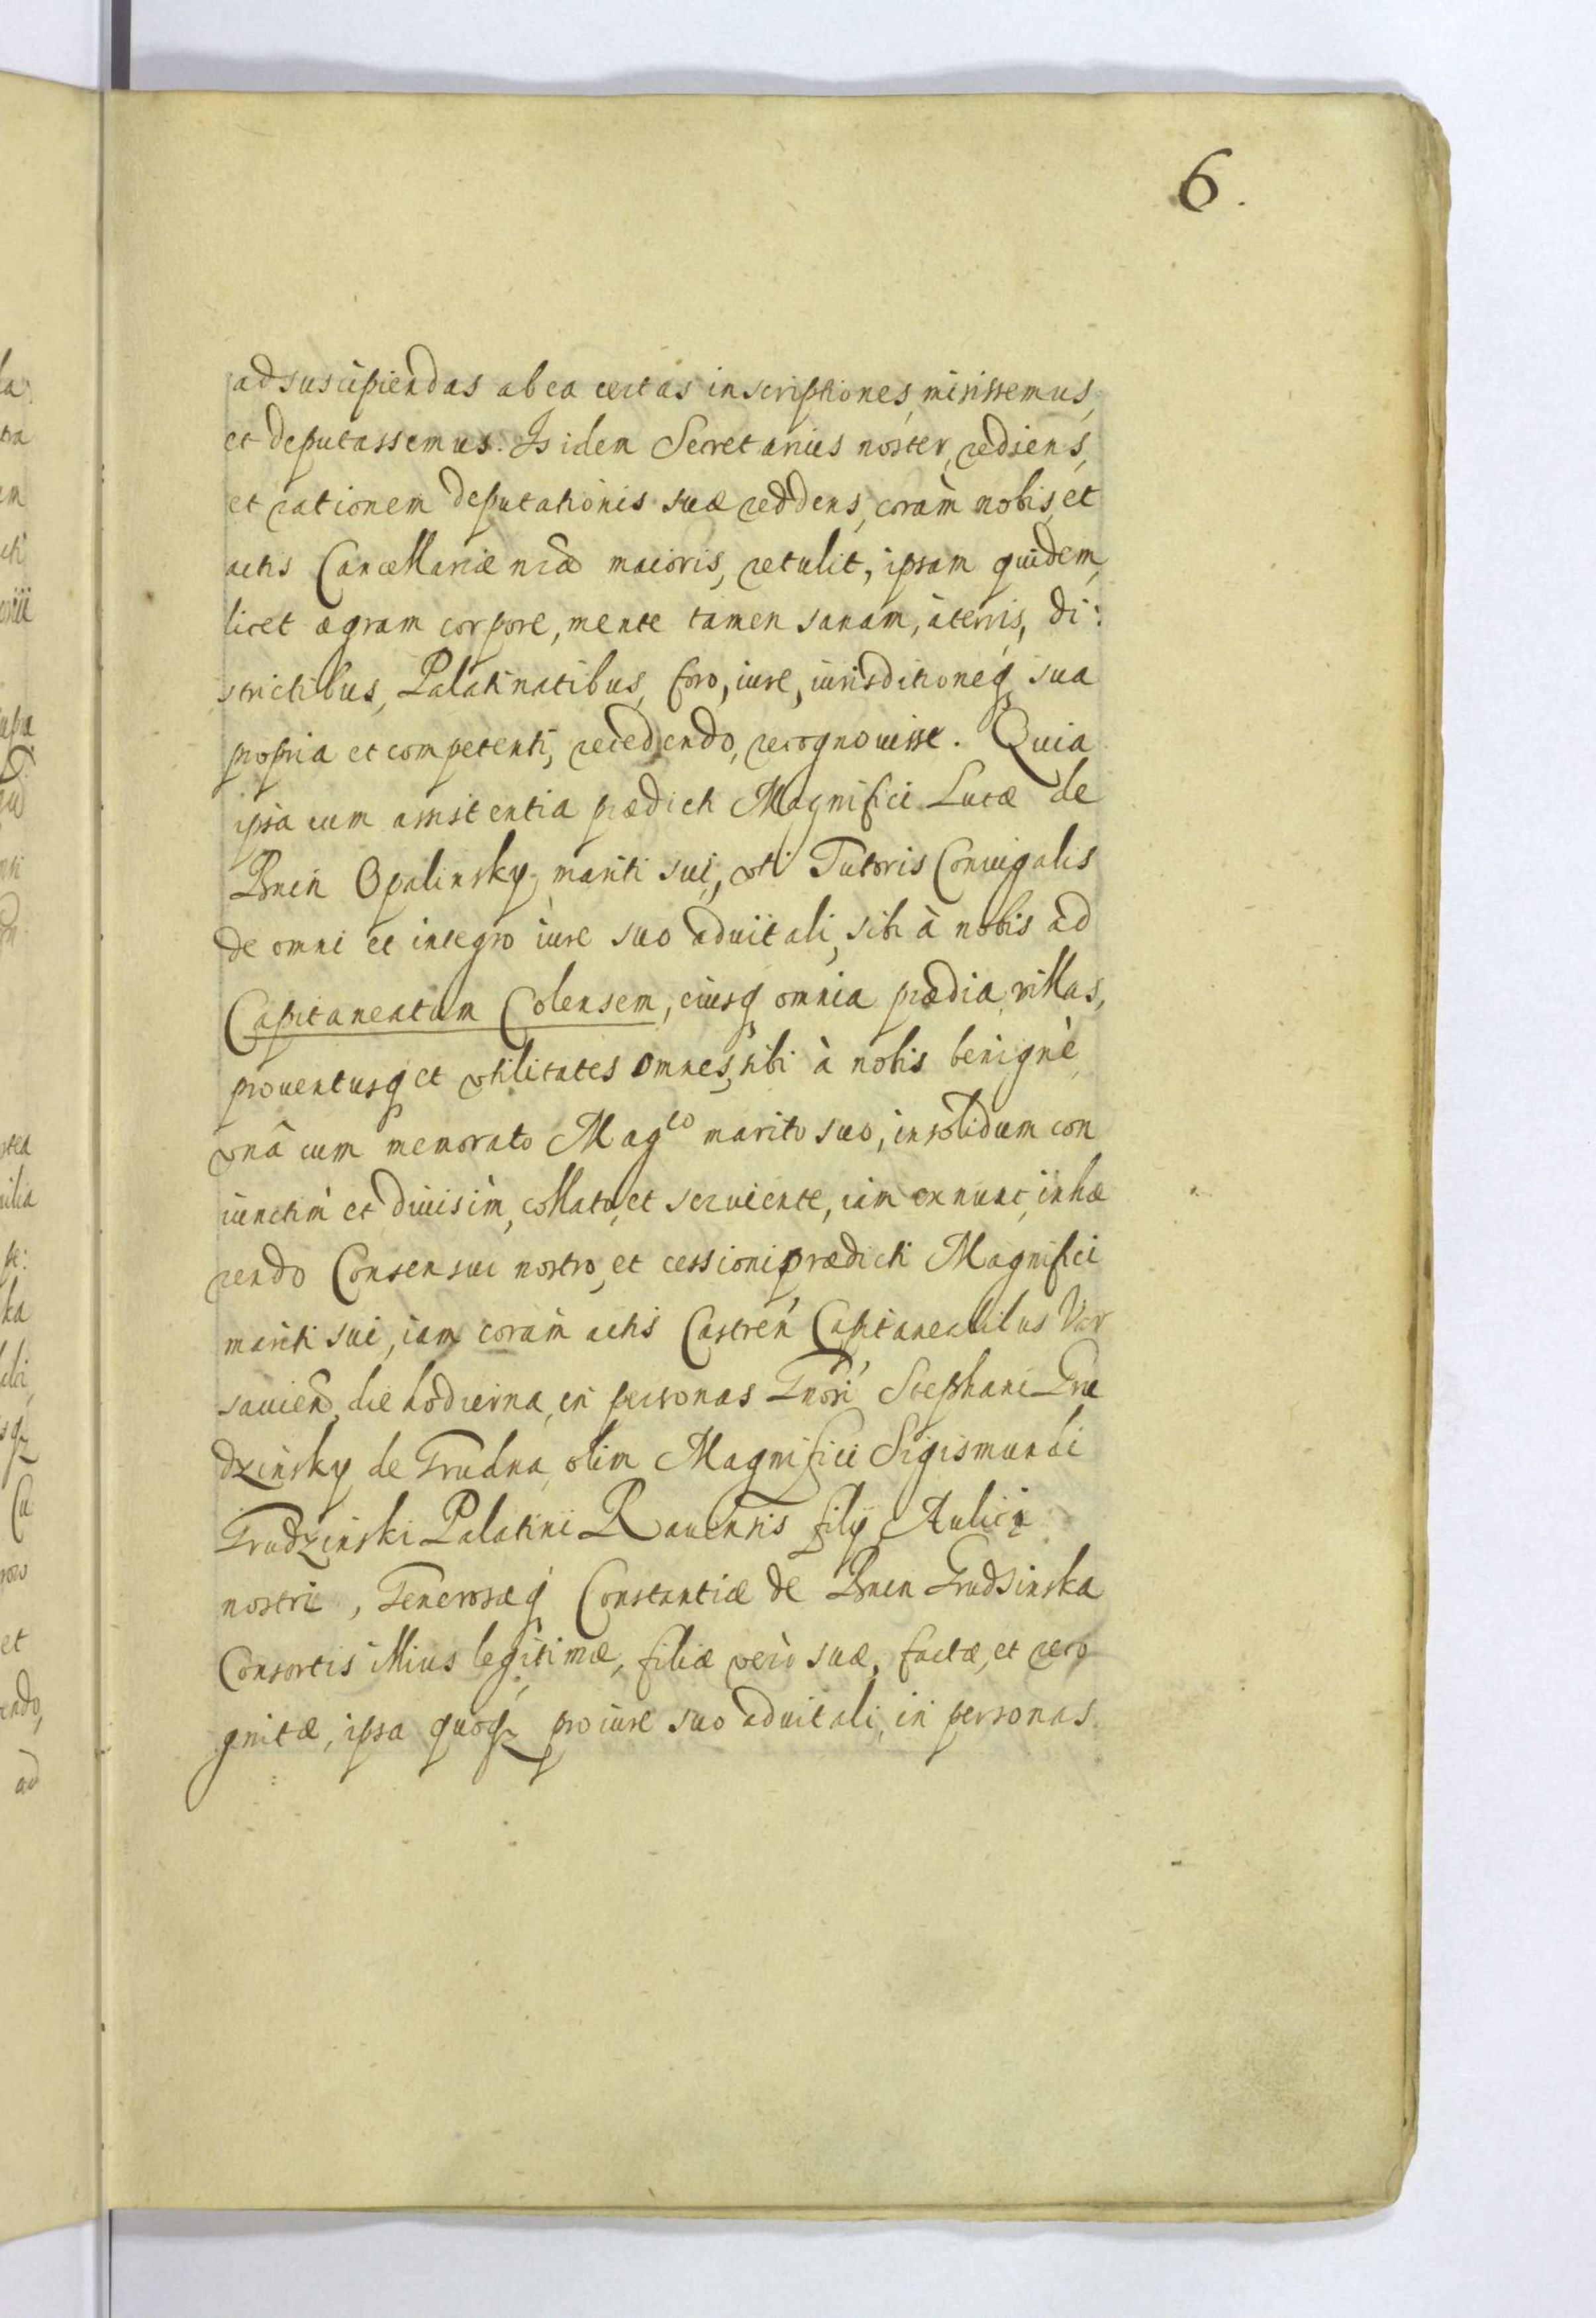 6.
ad suscipiendas ab ea certas inscriptiones, misissemus,
et deputassemus. Is idem Secretarius noster, rediens,
et rationem deputationis suæ reddens, coràm nobis, et
actis Cancellariæ nræ maioris, retulit, ipsam quidem,
licet ægram corpore, mente tamen sanam, à terris, di:
strictibus, Palatinatibus, foro, iure, iurisditioneq sua
propria et competenti, recedendo, recognouisse. Quia
ipsa cum assistentia prædicti Magnifici Lucæ de
Bnin Opalinsky, mariti sui, vti Tutoris Coniugalis
de omni et integro iure suo aduitali, sibi à nobis ad
Capitaneatum Colensem, eiusq omnia prædia, villas,
prouentusq et vtilitates omnes, sibi à nobis benignè,
vnâ cum memorato Magco marito suo, in solidum con
iunctim et diuisim, collato, et seruiente, iàm ex nunc, inhæ
rendo Consensui nostro, et cessioni prædicti Magnifici
mariti sui, iam coràm actis Castren Capitanealibus Var
sauien, die hodierna, in personas Gnosi Stephani Gru
dzinsky de Grudna, olim Magnifici Sigismundi
Grudzinski Palatini Rauensis filij Aulici
nostri, Generosæq Constantiæ de Bnin Grudsinska
Consortis illius legitimæ, filiæ verò suæ, factæ, et reco
gnitæ, ipsa quoq pro iure suo aduitali, in personas